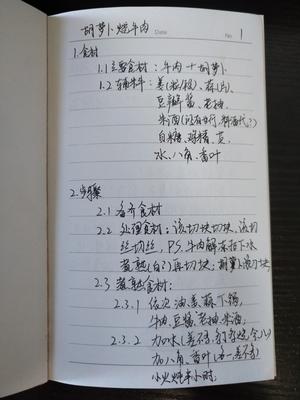 胡萝卜炖牛肉 Date No. 1
1.食材
1.1 主要食材：牛肉+胡萝卜
1.2 辅料：姜(
豆瓣酱、老抽
米酒(没有也行，料酒代？)
白糖、鸡精、
水、八角、香叶
2.步骤
2.1 备齐食材
2.2 处理食材：该切块切块，该切
丝切丝，PS.牛肉解冻后下水
煮熟(白？)再切块；胡萝卜滚刀块
2.3 煮熟食材：
2.3.1 依次 油、姜、蒜下锅，
牛肉、豆酱、老抽、米酒，
2.3.2 加水(差不多
加八角、香叶(
小火炖半小时，